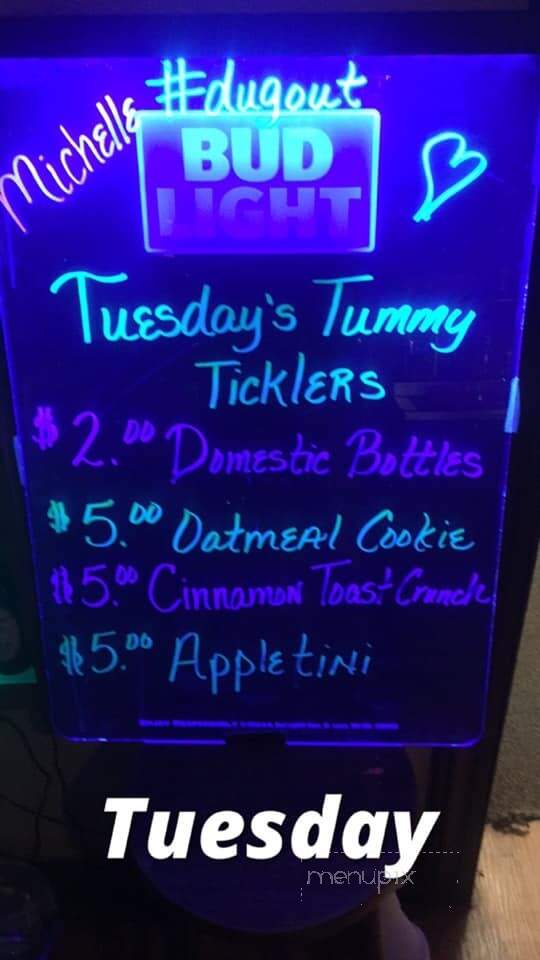 #dugout
Michelle
BUD
LIGHT
Tuesday's Tummy
Ticklers
$2.00 Domestic Bottles
$5.00 Oatmeal Cookie
$5.00 Cinnamon Toast Crunch
$5.00 Appletini
Tuesday
menupix